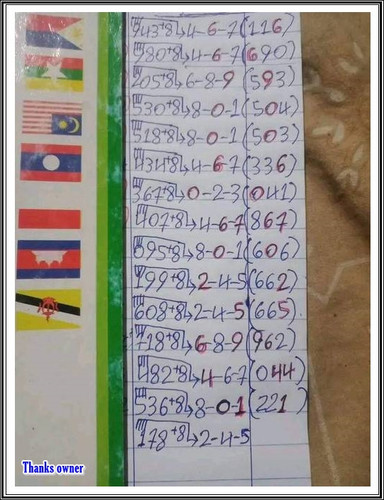 943+8↳4-6-7(116)
980+8↳4-6-7(690)
205+8↳6-8-9(593)
530+8↳8-0-1(504)
518+8↳8-0-1(503)
434+8↳4-6-7(336)
367+8↳0-2-3(041)
407+8↳4-6-7(867)
695+8↳8-0-1(606)
199+8↳2-4-5(662)
608+8↳2-4-5(665)
718+8↳6-8-9(962)
482+8↳4-6-7(044)
536+8↳8-0-1(221)
178+8↳2-4-5
Thanks owner